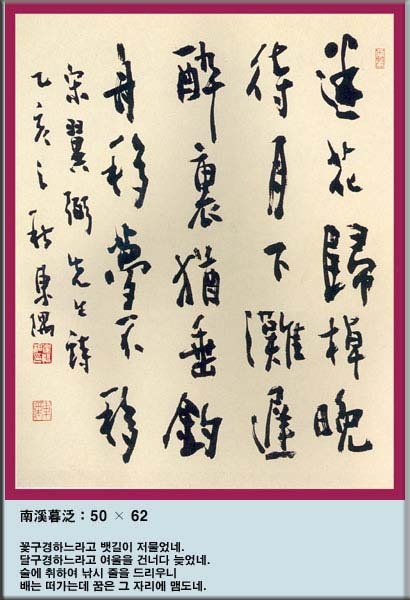 迷花歸棹晚
待月下灘遲
醉裏猶垂釣
舟移夢不移
宋翼弼先生詩
乙亥之秋東隅
南溪暮泛 : 50 × 62
꽃구경하느라고 뱃길이 저물었네.
달구경하느라고 여울을 건너다 늦었네.
술에 취하여 낚시 줄을 드리우니
배는 떠가는데 꿈은 그 자리에 맴도네.